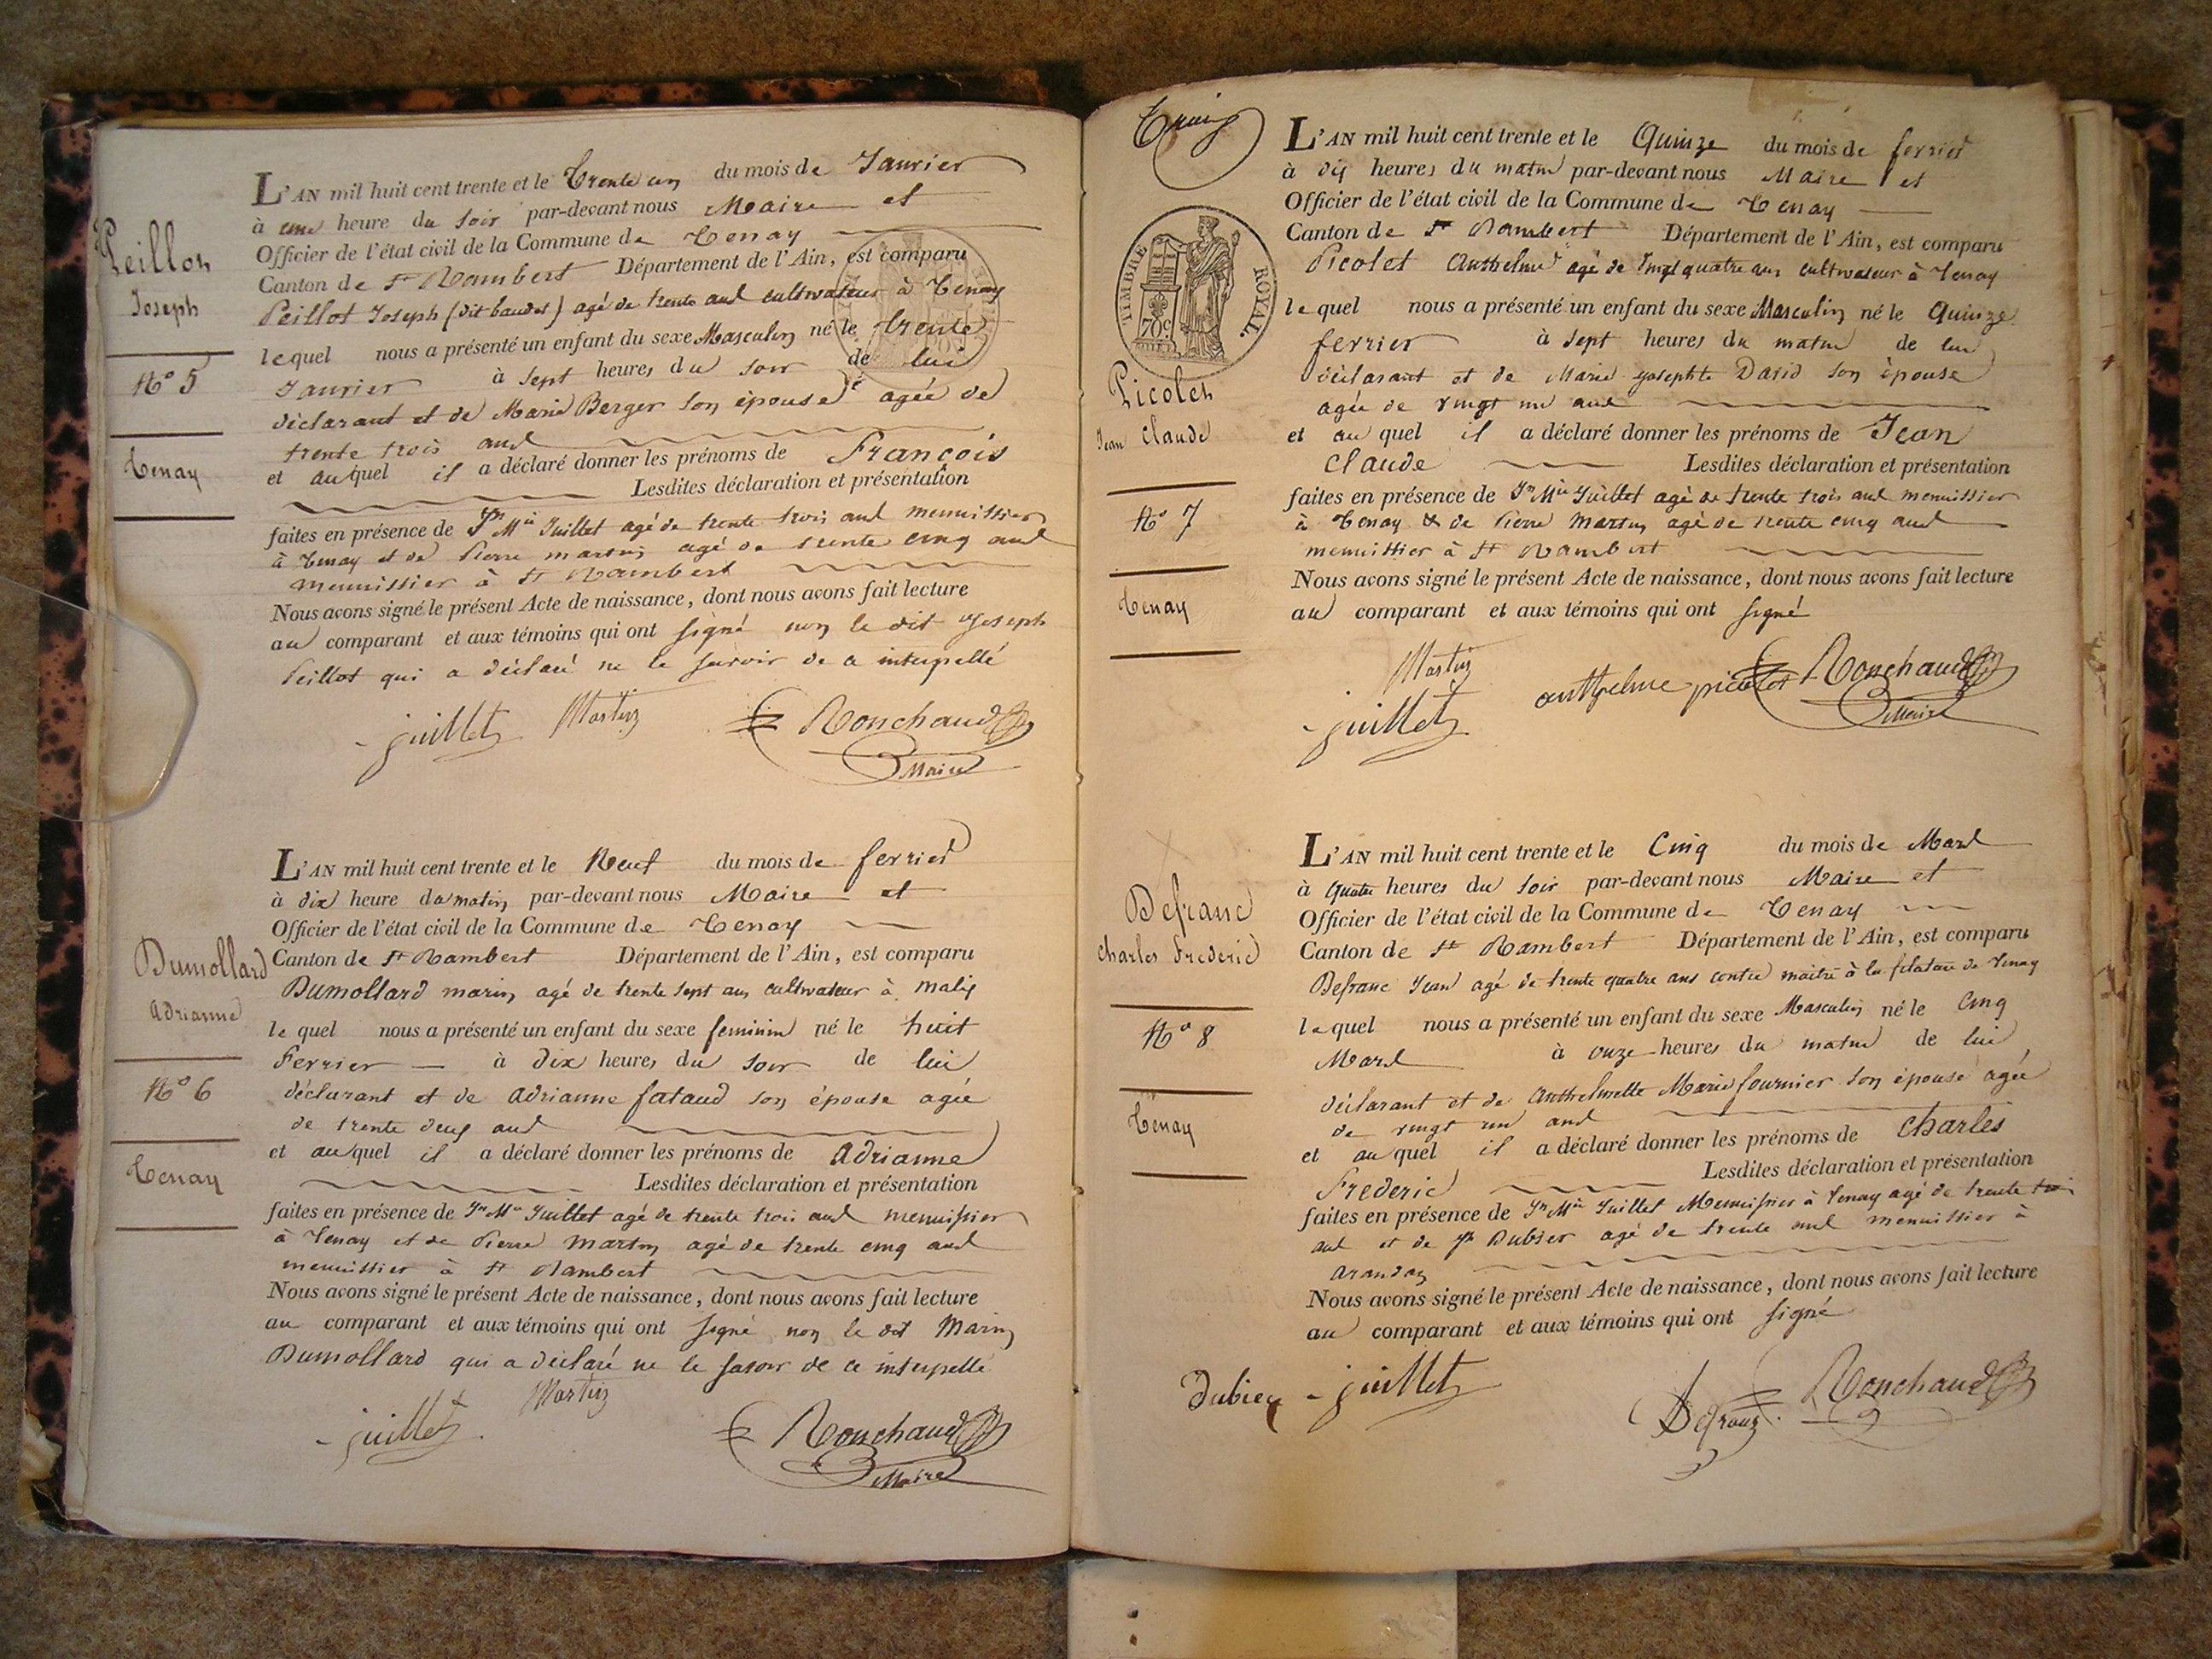 Peillot
Joseph
N° 5
Tenay
L'AN mil huit cent trente et le Trente un du mois de Janvier
à une heure du soir par-devant nous Maire et
Officier de l'état civil de la Commune de Tenay
Canton de St Rambert Département de l'Ain, est comparu
Peillot Joseph (dit baudet) agé de trente ans cultivateur à Tenay
lequel nous a présenté un enfant du sexe Masculin né le trente
Janvier à sept heures du soir de lui
déclarant et de Marie Berger son épouse agée de
trente trois ans
et auquel il a déclaré donner les prénoms de François
Lesdites déclaration et présentation
faites en présence de Jn Mie Juillet agé de trente trois ans menuissier
à Tenay et de Pierre martin agé de trente cinq ans
menuissier à St Rambert
Nous avons signé le présent Acte de naissance, dont nous avons fait lecture
au comparant et aux témoins qui ont signé non le dit Joseph
Peillot qui a déclaré ne le savoir de ce interpellé
juillet Martin Ronchaud
Maire
Dumollard
Adrianne
N° 6
Tenay
L'AN mil huit cent trente et le Neuf du mois de fevrier
à dix heure du matin par-devant nous Maire et
Officier de l'état civil de la Commune de Tenay
Canton de St Rambert Département de l'Ain, est comparu
Dumollard marin agé de trente sept ans cultivateur à malix
le quel nous a présenté un enfant du sexe feminin né le huit
Fevrier à dix heures du soir de lui
déclarant et de Adrianne fataud son épouse agée
de trente deux ans
et auquel il a déclaré donner les prénoms de Adrianne
Lesdites déclaration et présentation
faites en présence de Jn Mie Juillet agé de trente trois ans menuissier
à Tenay et de Pierre Martin agé de trente cinq ans
menuissier à St Rambert
Nous avons signé le présent Acte de naissance, dont nous avons fait lecture
au comparant et aux témoins qui ont signé non le dit Marin
Dumollard qui a déclaré ne le savoir de ce interpellé
juillet Martin Ronchaud
Maire
TIMBRE ROYAL.
70c
Picolet
Jean Claude
N° 7
Tenay
L'AN mil huit cent trente et le Quinze du mois de fevrier
à dix heures du matin par-devant nous Maire et
Officier de l'état civil de la Commune de Tenay
Canton de St Rambert Département de l'Ain, est comparu
Picolet Anthelme agé de vingt quatre ans cultivateur à Tenay
lequel nous a présenté un enfant du sexe Masculin né le Quinze
fevrier à sept heures du matin de lui
déclarant et de Marie josephte David son épouse
agée de vingt un ans
et au quel il a déclaré donner les prénoms de Jean
Claude Lesdites déclaration et présentation
faites en présence de Jn Mie Juillet agé de trente trois ans menuissier
à Tenay & de Pierre Martin agé de trente cinq ans
menuissier à St Rambert
Nous avons signé le présent Acte de naissance, dont nous avons fait lecture
au comparant et aux témoins qui ont signé
Martin
juillet anthelme picolet Ronchaud
Maire
Defranc
Charles Frederic
N° 8
Tenay
L'AN mil huit cent trente et le Cinq du mois de Mars
à quatre heures du soir par-devant nous Maire et
Officier de l'état civil de la Commune de Tenay
Canton de St Rambert Département de l'Ain, est comparu
Defranc Jean agé de trente quatre ans contre maitre à la filature de Tenay
lequel nous a présenté un enfant du sexe Masculin né le Cinq
Mars à onze heures du matin de lui
déclarant et de Anthelmette Marie fournier son épouse agée
de vingt un ans
et au quel il a déclaré donner les prénoms de Charles
Frederic Lesdites déclaration et présentation
faites en présence de Jn Mie Juillet Menuissier à Tenay agé de trente trois
ans et de Jh Dubier agé de trente ans menuissier à
Arandas
Nous avons signé le présent Acte de naissance, dont nous avons fait lecture
au comparant et aux témoins qui ont signé
Dubier juillet Defranc Ronchaud